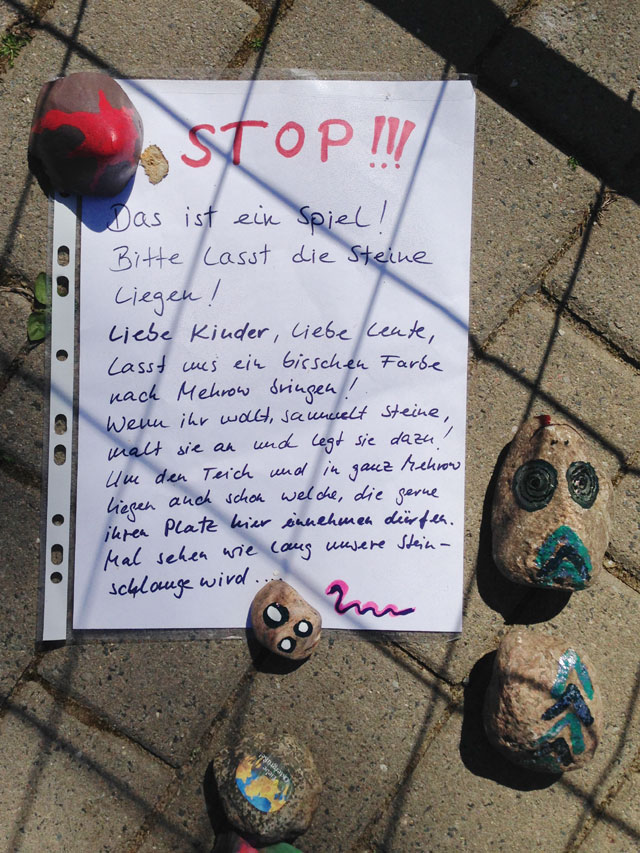 STOP!!!
Das ist ein Spiel!
Bitte lasst die Steine
liegen!
Liebe Kinder, liebe Leute,
lasst uns ein bisschen Farbe
nach Mehrow bringen!
Wenn ihr wollt, sammelt Steine,
malt sie an und legt sie dazu!
Um den Teich und in ganz Mehrow
liegen auch schon welche, die gerne
ihren Platz hier einnehmen dürfen.
Mal sehen wie lang unsere Stein-
schlange wird...